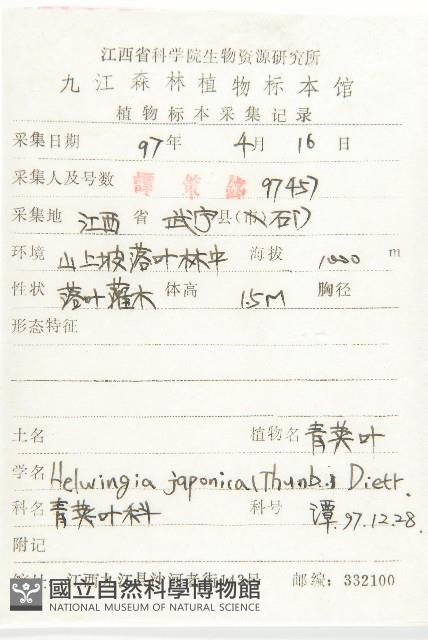 江西省科学院生物资源研究所
九江森林植物标本馆
植物标本采集记录
采集日期 97年 4月 16日
采集人及号数 譚策銘 97457
采集地 江西 省 武宁县(市)石门
环境 山上坡落叶林中 海拔 1000 m
性状 落叶灌木 体高 1.5M 胸径
形态特征
土名 植物名 青荚叶
学名 Helwingia japonica (Thunb.) Dietr.
科名 青荚叶科 科号 潭.97.12.28.
附记
馆址:江西九江县沙河老街142号 邮编:332100
國立自然科學博物館
NATIONAL MUSEUM OF NATURAL SCIENCE